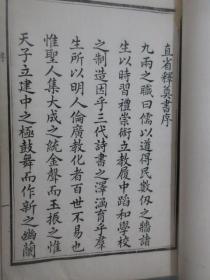 直省釋奠書序
九兩之職曰儒以道得民數仭之牆諸
生以時習禮崇術立教履中蹈和學校
之制造因乎三代詩書之澤涵育乎羣
生所以明人倫廣教化者百世不易也
惟聖人集大成之誠金聲而玉振之惟
天子立建中之極鼓舞而作新之幽蘭
序